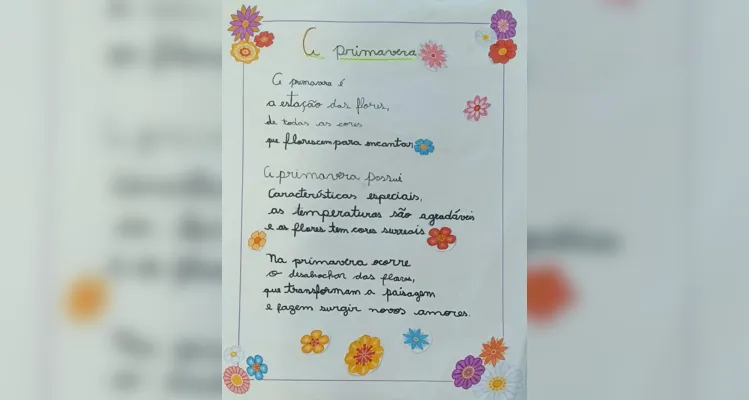 A primavera
A primavera é
a estação das flores,
de todas as cores
que florescem para encantar
A primavera possui
Características especiais,
as temperaturas são agradáveis
e as flores tem cores surreais
Na primavera ocorre
o desabochar das flores,
que transformam a paisagem
e fazem surgir novos amores.